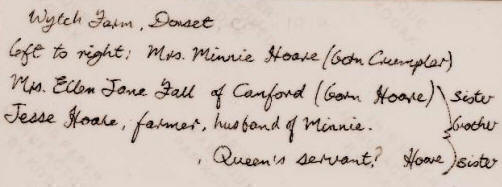 Wytch Farm, Dorset
left to right: Mrs. Minnie Hoare (born Crumpler)
Mrs. Ellen Jane Fall of Canford (born Hoare) } sister
Jesse Hoare, farmer, husband of Minnie. } brother
, Queen's servant? Hoare } sister